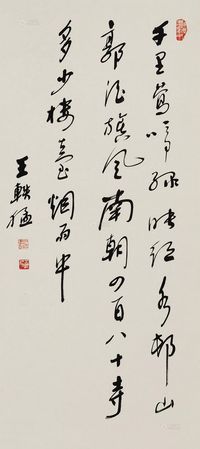 千里鶯啼绿映红水邨山
郭酒旗风南朝四百八十寺
多少楼台烟雨中
王軼猛